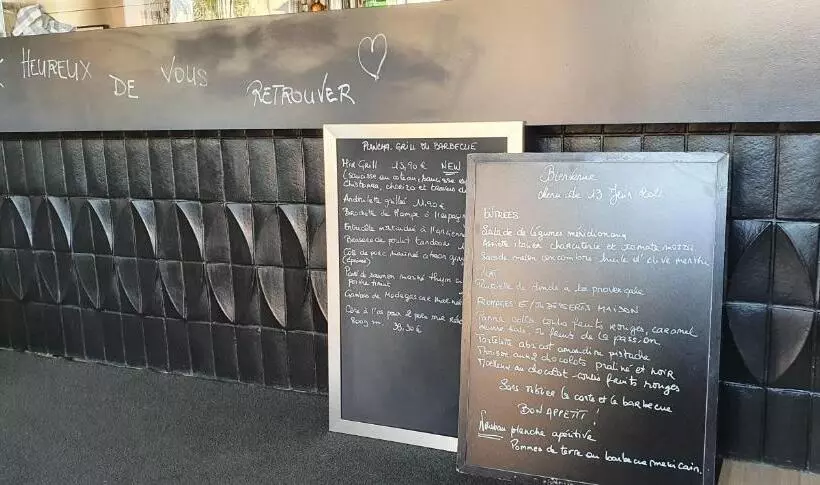 HEUREUX DE VOUS RETROUVER
PLANCHA, GRILL OU BARBECUE
Mix Grill 13,90 € NEW
(saucisse au couteau, saucisse
Chistorra, chorizo et travers de
Andouillette grillée 11,90 €
Brochette de Rampe à l'espagn
Entrecôte maturée à l'ancienne
Brochette de poulet tandoori
Côte de porc mariné citron
(épicée)
Pavé de saumon mariné thym
poivre timut
Gambas de Madagascar
Côte à l'os pour 2 pers
800g 38,30 €
Bienvenue
Menu du 13 Juin
ENTRÉES
Salade de légumes méridionaux
Assiette italien charcuterie et tomate mozza
Salade melon concombre huile d'olive menthe
PLAT
de dinde a la provençale
FROMAGES ET/OU DESSERTS MAISON
Panna cotta coulis fruits rouges, caramel
beurre salé, ou fruits de la passion
Tartelette abricot amandine pistache
aux 2 chocolats praliné et noir
Moelleux au chocolat coulis fruits rouges
Sans oublier la carte et le barbecue
BON APPETIT !
Nouveau planche apéritive
Pommes de terre au barbecue mexicain.